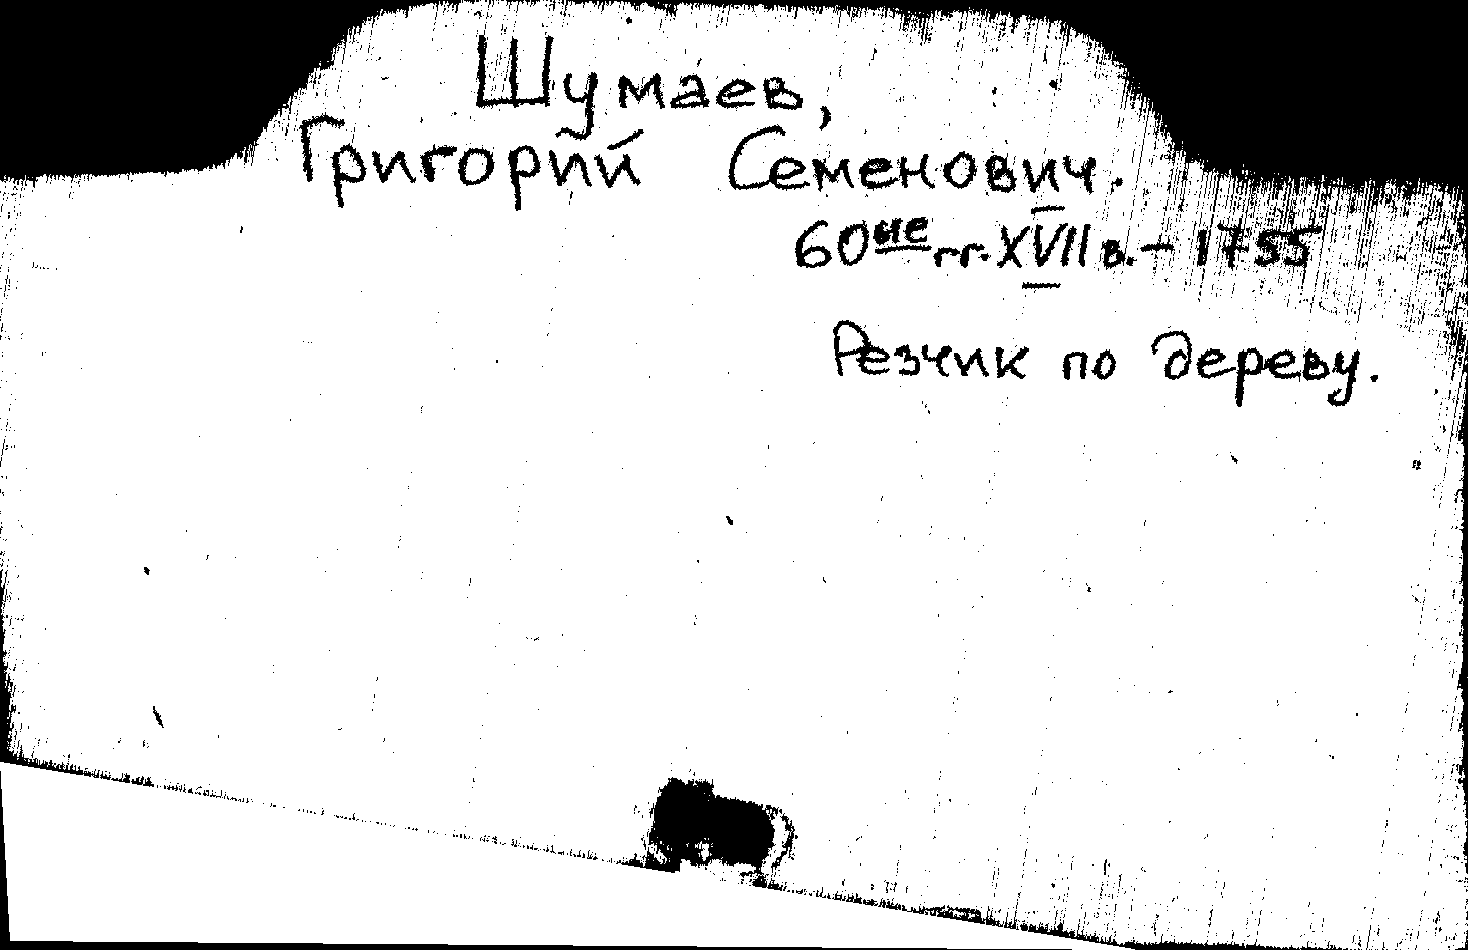 Шумаев,
Григорий Семенович.
60ые гг. XVII в. – 1755
Резчик по дереву.